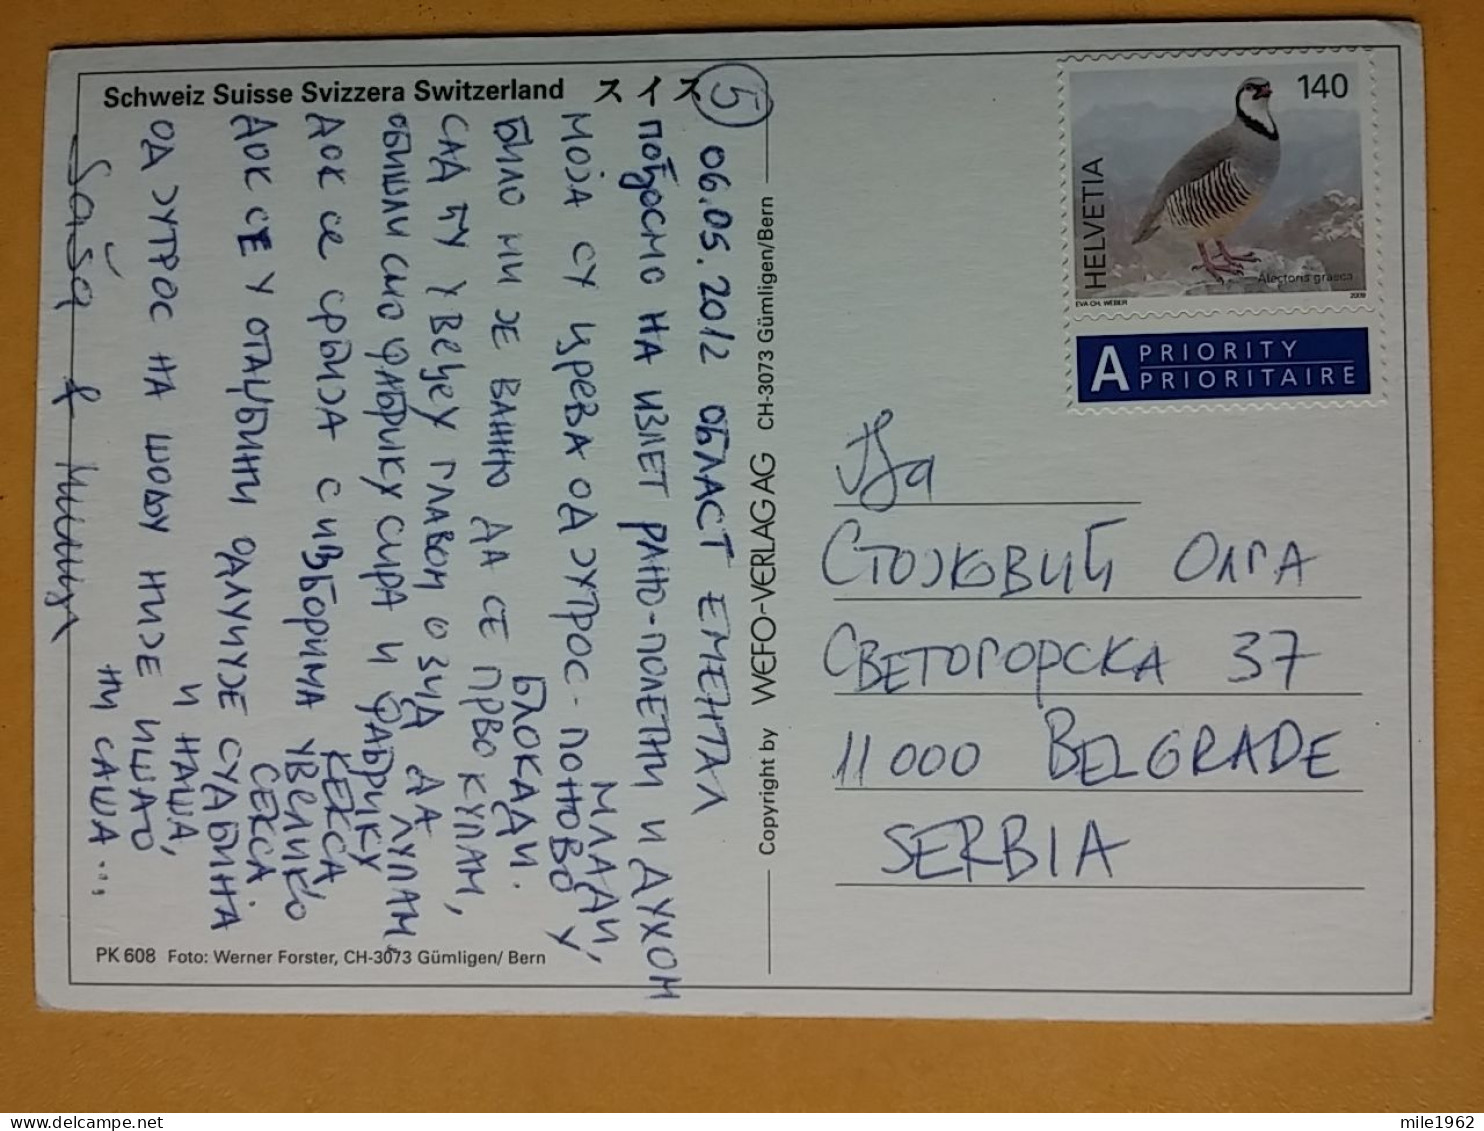 Schweiz Suisse Svizzera Switzerland スイス
5
06.05.2012 ОБЛАСТ ЕМЕНТАЛ
ПОЂОСМО НА ИЗЛЕТ РАНО-ПОЛЕТНИ И ДУХОМ МЛАДИ,
МОЈА СУ ЦРЕВА ОД ЈУТРОС - ПОНОВО У БЛОКАДИ.
БИЛО МИ ЈЕ ВАЖНО ДА СЕ ПРВО КУПАМ,
САД ЋУ У ВЕЦЕУ ГЛАВОМ О ЗИД ДА ЛУПАМ,
ОБИШЛИ СМО ФАБРИКУ СИРА И ФАБРИКУ КЕКСА
ДОК СЕ СРБИЈА С ИЗБОРИМА УВЕЛИКО СЕКСА.
ДОК СЕ У ОТАЏБИНИ ОДЛУЧУЈЕ СУДБИНА И НАША,
ОД ЈУТРОС НА ШОЉУ НИЈЕ ИШАО НИ САША...
Saša &
PK 608 Foto: Werner Forster, CH-3073 Gümligen/ Bern
Copyright by WEFO-VERLAG AG CH-3073 Gümligen/Bern
HELVETIA
140
Alectoris graeca
EVA CH. WEBER
2009
A PRIORITY
PRIORITAIRE
За
СТОЈКОВИЋ ОЛГА
СВЕТОГОРСКА 37
11000 BELGRADE
SERBIA
mile1962